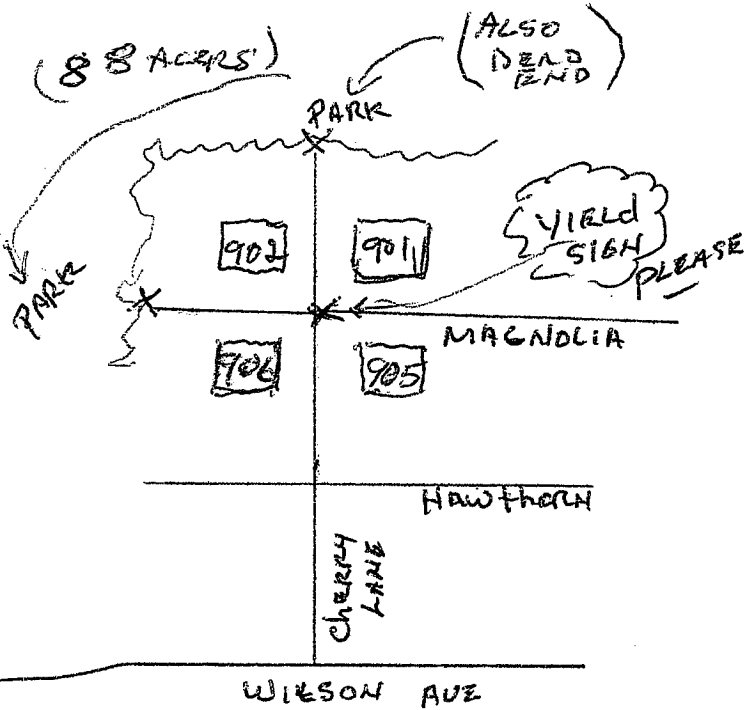 (88 ACERS)
(ALSO
DEAD
END)
PARK
902
901
YIELD
SIGN
PLEASE
PARK
MAGNOLIA
906
905
HAWTHORN
CHERRY
LANE
WILSON AVE